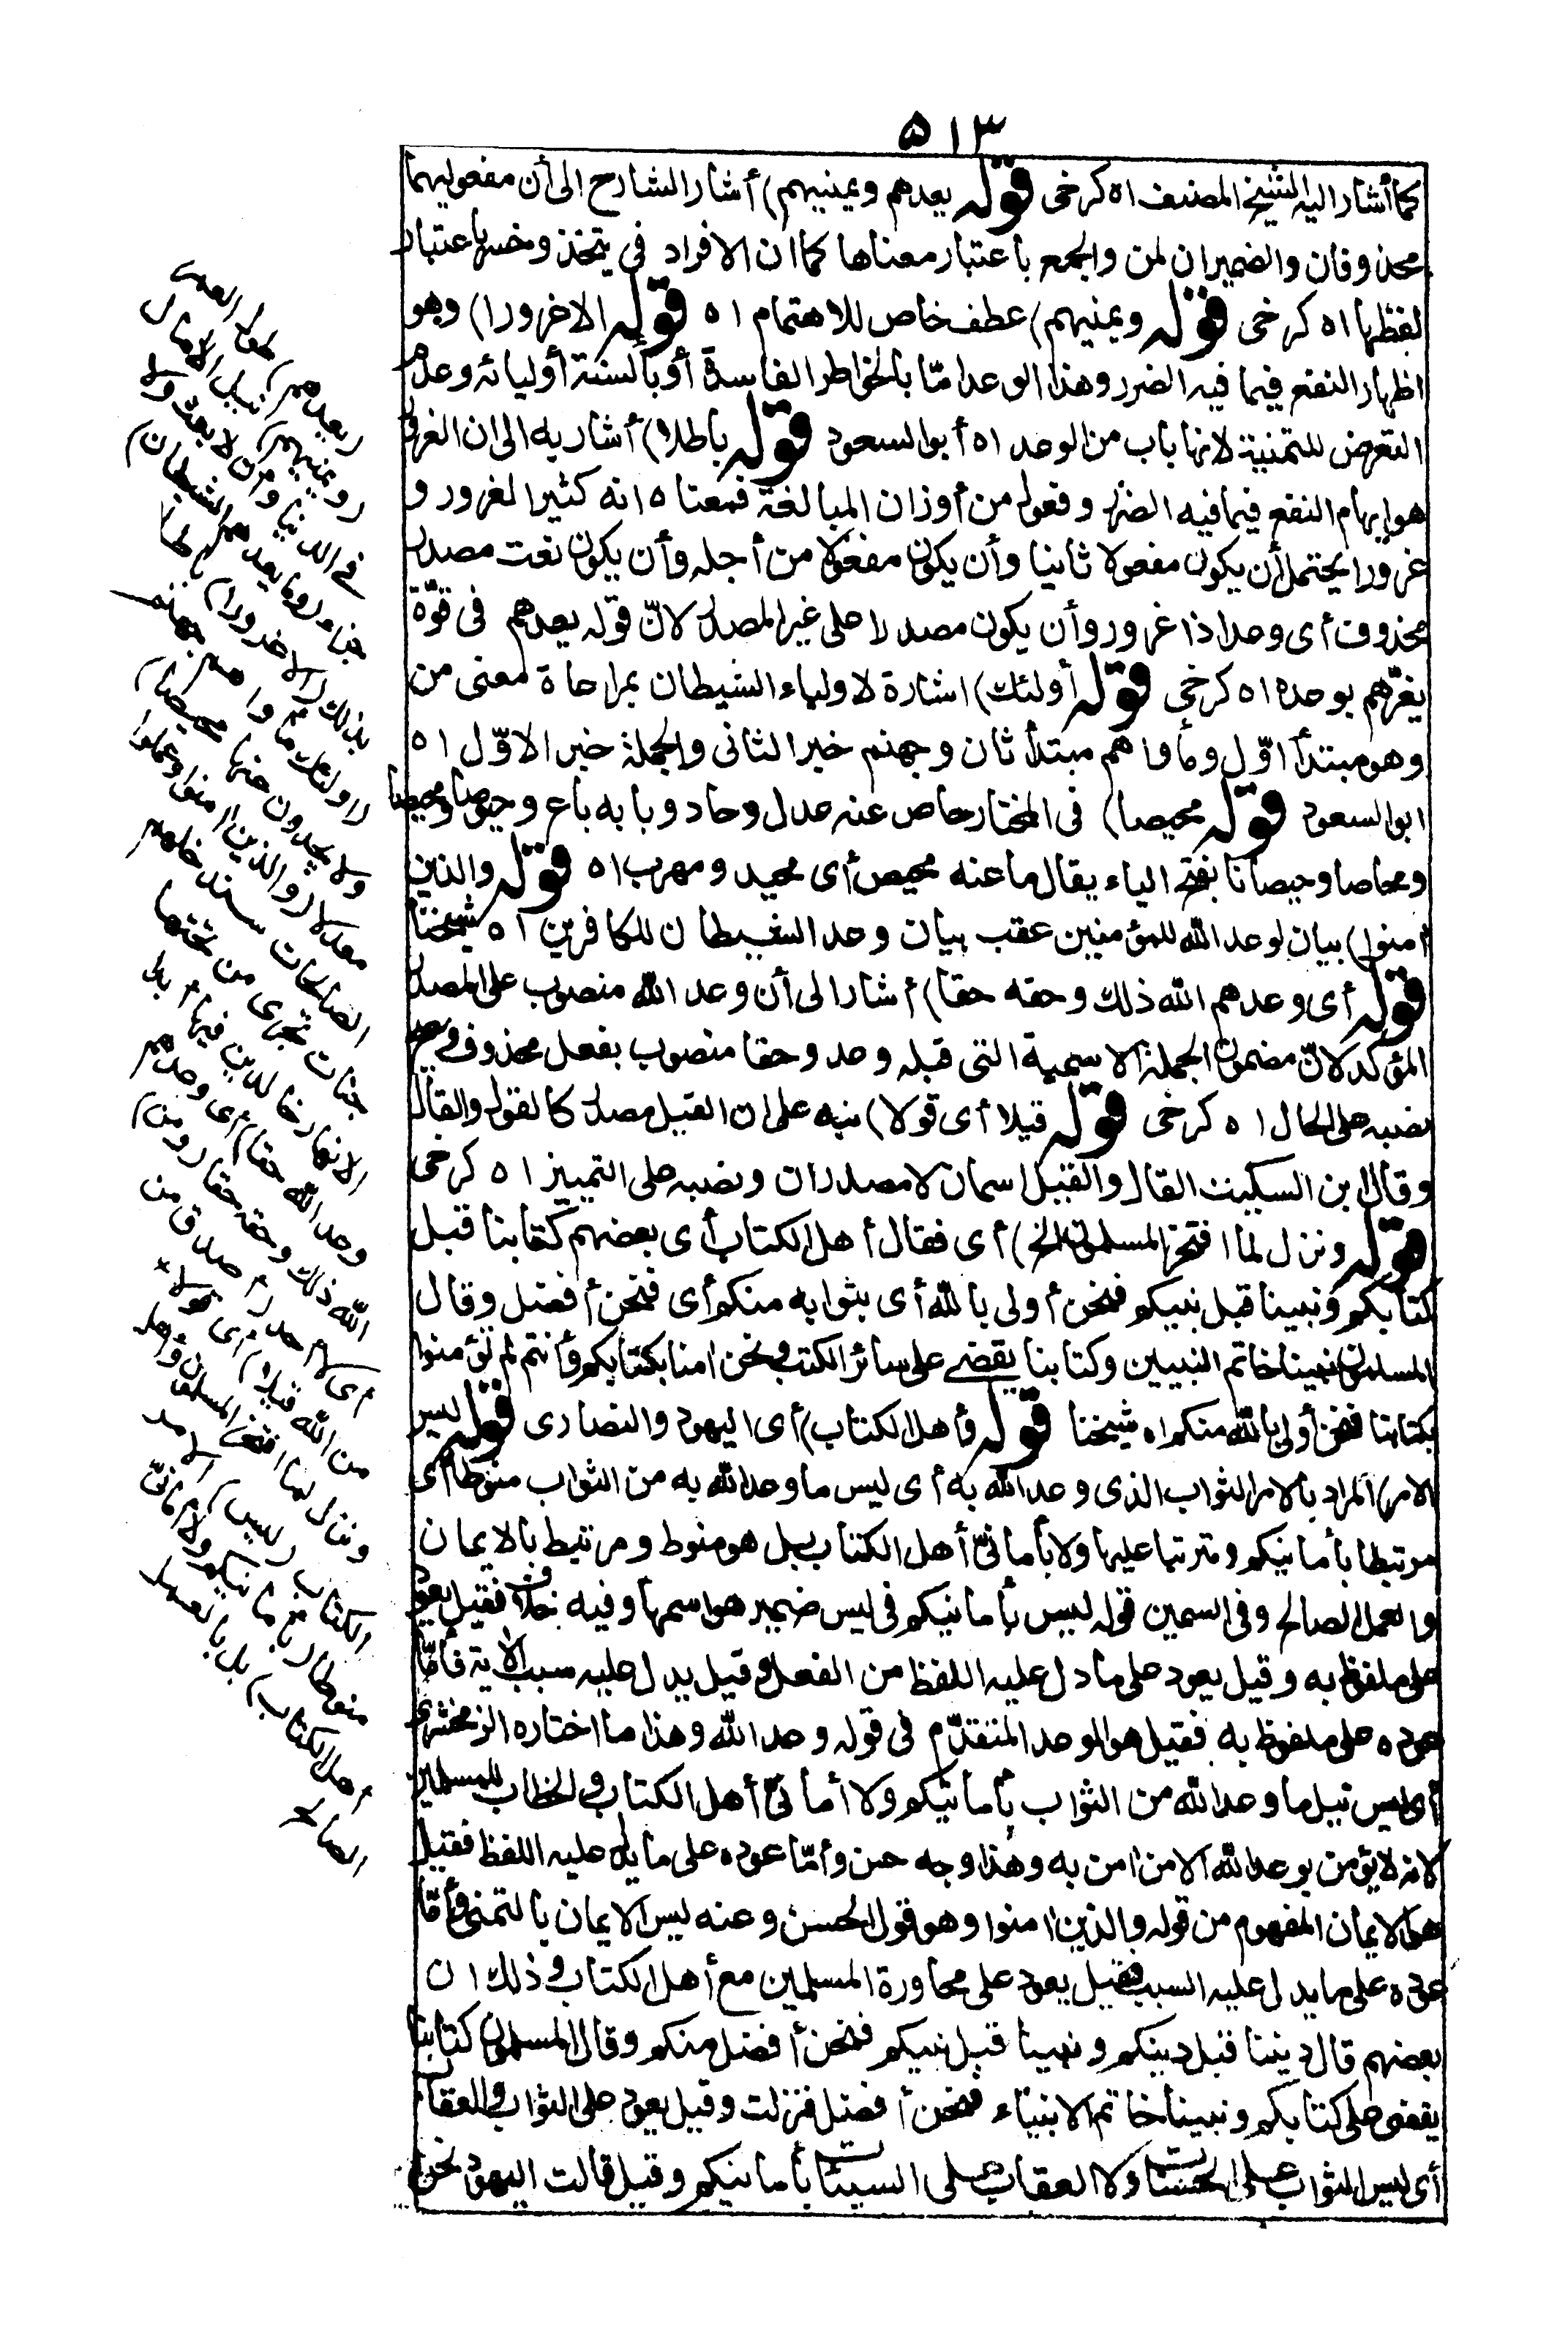 ٥١٣
كما أشار اليه الشيخ المصنف اه كرخى قوله يعدهم ويمنيهم) أشار الشارح الى أن مفعوليهما
محذوفان والضميران لمن والجمع باعتبار معناها كما ان الافراد فى يتخذ وخسر باعتبار
لفظها اه كرخى قوله ويمنيهم) عطف خاص للاهتمام اه قوله الا غرورا) وهو
اظهار النفع فيما فيه الضرر وهذا الوعد امّا بالخواطر الفاسدة أو بألسنة أوليائه وعدم
التعرض للتمنية لانها باب من الوعد اه أبو السعود قوله باطلا) أشار به الى ان الغرور
هو ايهام النفع فيما فيه الضرر وفعول من أوزان المبالغة فمعناه انه كثير الغرور و
غرورا يحتمل أن يكون مفعولا ثانيا وأن يكون مفعولا من أجله وأن يكون نعت مصدر
محذوف أى وعدا ذا غرور وأن يكون مصدرا على غير المصدر لانّ قوله يعدهم فى قوّة
يغرّهم بوعده اه كرخى قوله أولئك) اشارة لاولياء الشيطان بمراعاة معنى من
وهو مبتدأ اوّل ومأواهم مبتدأ ثان وجهنم خبر الثانى والجملة خبر الاوّل اه
ابو السعود قوله محيصا) فى المختار حاص عنه عدل وحاد وبابه باع وحيوصا ومحيصا
ومحاصا وحيصانا بفتح الياء يقال ما عنه محيص أى محيد ومهرب اه قوله والذين
آمنوا) بيان لوعد الله للمؤمنين عقب بيان وعد الشيطان للكافرين اه شيخنا
قوله أى وعدهم الله ذلك وحقه حقا) أشار الى أن وعد الله منصوب على المصدر
المؤكد لانّ مضمون الجملة الاسمية التى قبله وعد وحقا منصوب بفعل محذوف ويصح
نصبه على الحال اه كرخى قوله قيلا أى قولا) نبه على ان القيل مصدر كالقول والقال
وقال ابن السكيت القال والقيل اسمان لا مصدران ونصبه على التمييز اه كرخى
قوله ونزل لما افتخر المسلمون الخ) أى فقال أهل الكتاب أى بعضهم كتابنا قبل
كتابكم ونبينا قبل نبيكم فنحن أولى بالله أى بثوابه منكم أى فنحن أفضل وقال
المسلمون نبينا خاتم النبيين وكتابنا يقضى على سائر الكتب ونحن امنا بكتابكم وأنتم لم تؤمنوا
بكتابنا فنحن أولى بالله منكم اه شيخنا قوله وأهل الكتاب) أى اليهود والنصارى قوله ليس
الامر) المراد بالامر الثواب الذى وعد الله به أى ليس ما وعد الله به من الثواب منوطا أى
مرتبطا بأمانيكم ومترتبا عليها ولا بأمانىّ أهل الكتاب بل هو منوط ومرتبط بالايمان
والعمل الصالح وفى السمين قوله ليس بأمانيكم فى ليس ضمير هو اسمها وفيه خلاف فقيل يعود
على ملفوظ به وقيل يعود على ما دل عليه اللفظ من الفعل وقيل يدل عليه سبب الآية فأمّا
عوده على ملفوظ به فقيل هو الوعد المتقدّم فى قوله وعد الله وهذا ما اختاره الزمخشرى
أى ليس نيل ما وعد الله من الثواب بأمانيكم ولا أمانىّ أهل الكتاب والخطاب للمسلمين
لانه لا يؤمن بوعد الله الا من امن به وهذا وجه حسن وأمّا عوده على ما يدل عليه اللفظ فقيل
هو الايمان المفهوم من قوله والذين امنوا وهو قول الحسن وعنه ليس الايمان بالتمنى وأمّا
عوده على ما يدل عليه السبب فقيل يعود على محاورة المسلمين مع أهل الكتاب وذلك ان
بعضهم قال ديننا قبل دينكم ونبينا قبل نبيكم فنحن أفضل منكم وقال المسلمون كتابنا
يقضى على كتابكم ونبينا خاتم الانبياء فنحن أفضل فنزلت وقيل يعود على الثواب والعقاب
أى ليس الثواب على الحسنات ولا العقاب على السيئات بأمانيكم وقيل قالت اليهود نحن
(يعدهم) طول العمر
(ويمنيهم) نيل الآمال
فى الدنيا وأن لا بعث ولا
جزاء (وما يعدهم الشيطان)
بذلك (الا غرورا) باطلا
(اولئك مأواهم جهنم
ولا يجدون عنها محيصا)
معدلا (والذين امنوا وعملوا
الصالحات سندخلهم
جنات تجرى من تحتها
الانهار خالدين فيها أبدا
وعد الله حقا) أى وعدهم
الله ذلك وحقه حقا (ومن)
أى لا أحد (أصدق من
من الله قيلا) أى قولا *
ونزل لما افتخر المسلمون وأهل
الكتاب (ليس) الامر
منوطا (بأمانيكم ولا أمانىّ
أهل الكتاب) بل بالعمل
الصالح